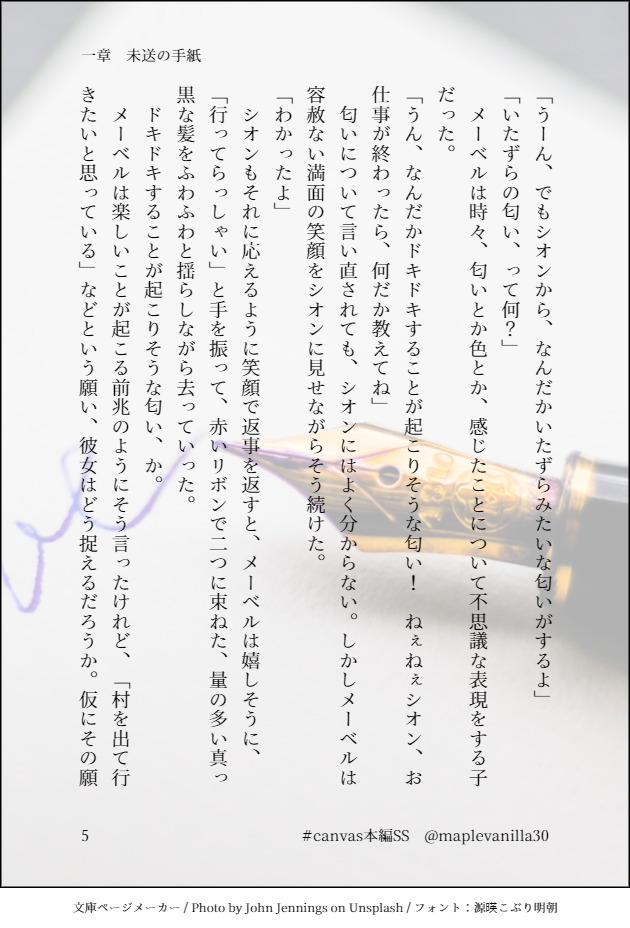 一章　未送の手紙
「うーん、でもシオンから、なんだかいたずらみたいな匂いがするよ」
「いたずらの匂い、って何？」
　メーベルは時々、匂いとか色とか、感じたことについて不思議な表現をする子
だった。
「うん、なんだかドキドキすることが起こりそうな匂い！　ねぇねぇシオン、お
仕事が終わったら、何だか教えてね」
　匂いについて言い直されても、シオンにはよく分からない。しかしメーベルは
容赦ない満面の笑顔をシオンに見せながらそう続けた。
「わかったよ」
　シオンもそれに応えるように笑顔で返事を返すと、メーベルは嬉しそうに、
「行ってらっしゃい」と手を振って、赤いリボンで二つに束ねた、量の多い真っ
黒な髪をふわふわと揺らしながら去っていった。
　ドキドキすることが起こりそうな匂い、か。
　メーベルは楽しいことが起こる前兆のようにそう言ったけれど、「村を出て行
きたいと思っている」などという願い、彼女はどう捉えるだろうか。仮にその願
5
#canvas本編SS　@maplevanilla30
文庫ページメーカー / Photo by John Jennings on Unsplash / フォント：源暎こぶり明朝